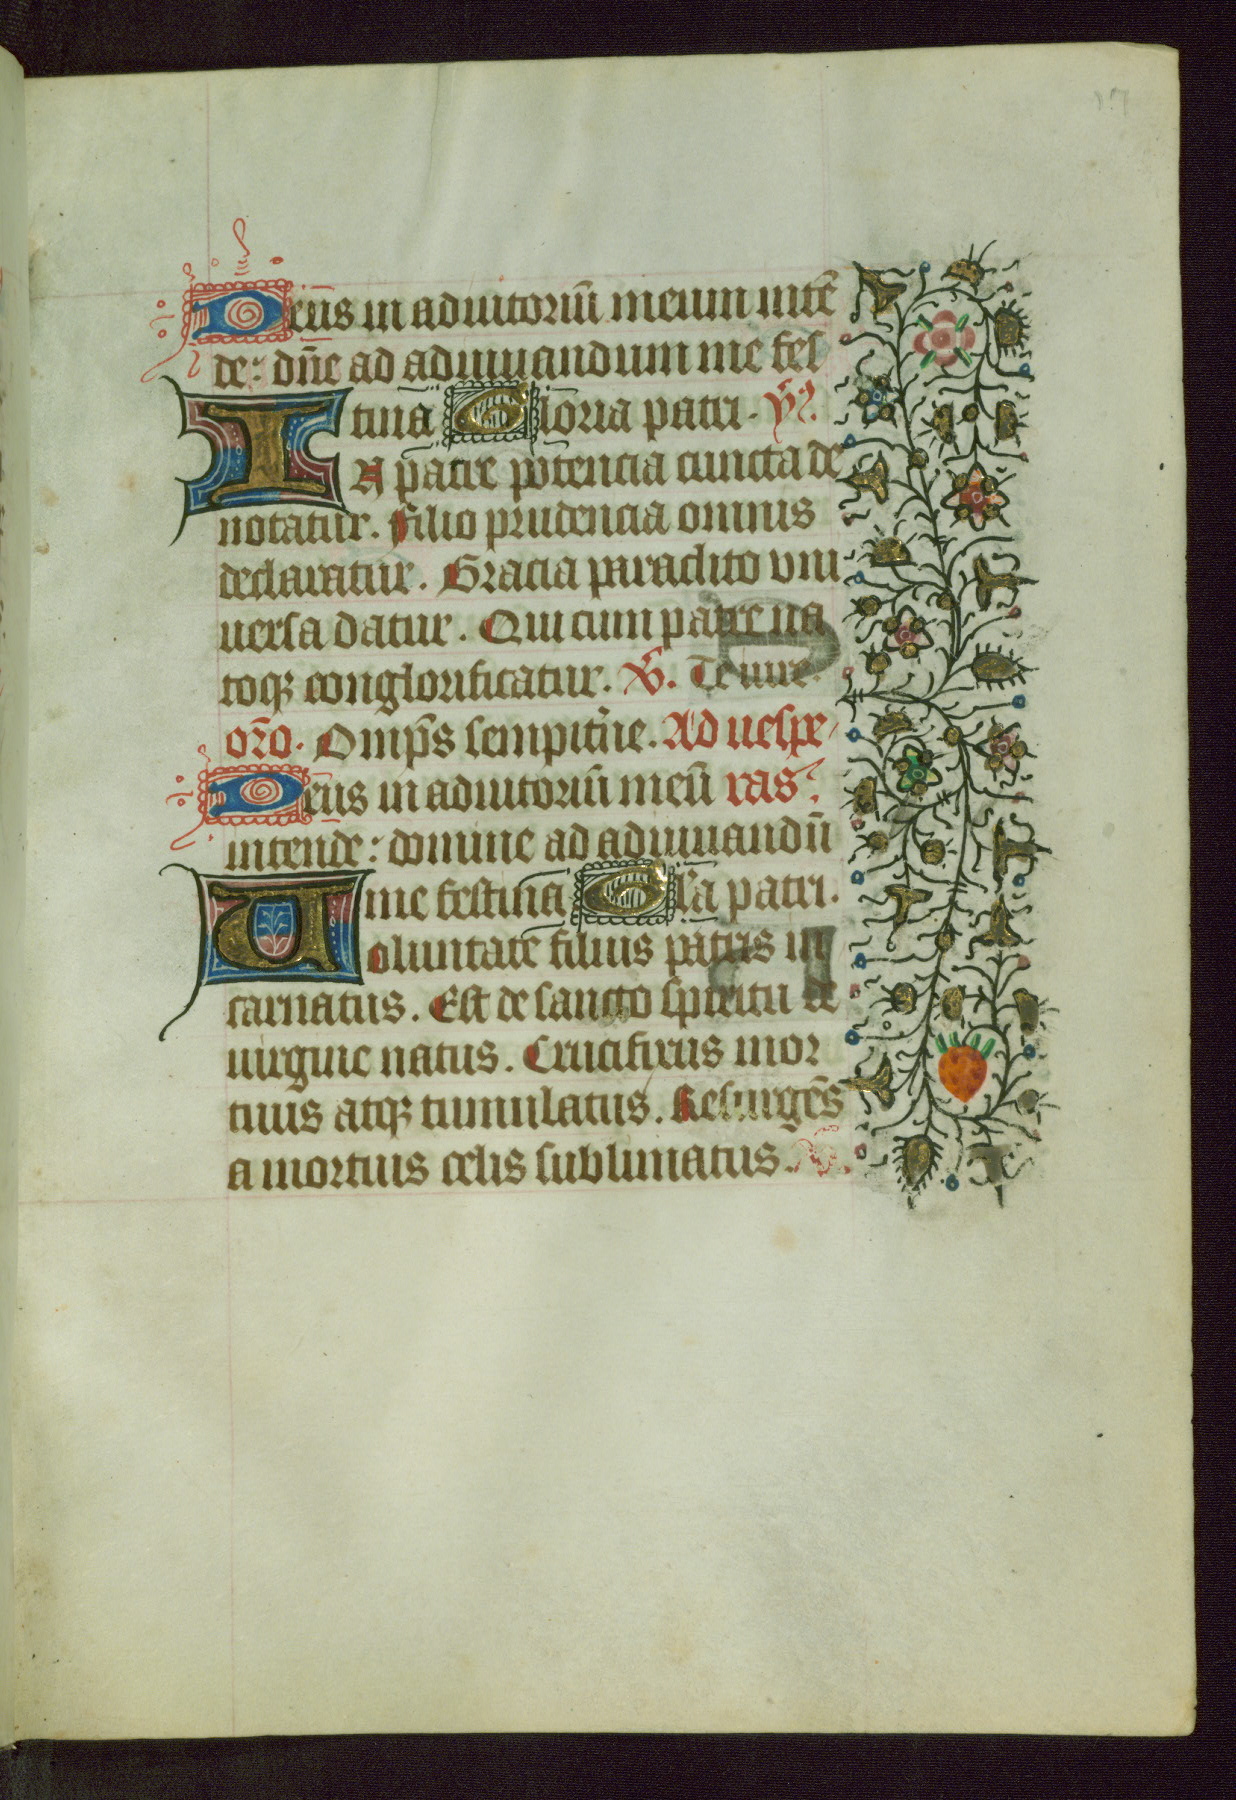 17
Deus in adiutoriū meum intē
de: dn̄e ad adiuuandum me fes
tina Gloria patri. ym̄.
IA patre potencia cuncta de
notatur. Filio prudencia omnis
declaratur. Gracia paraclito vni
uersa datur. Qui cum patre na
toqꝫ conglorificatur. V̄. Te iure.
or̄o. Omp̄s sempit̄ne. Ad uespe
Deus in adiutoriū meū ras.
intende: domine ad adiuuandū
me festina Gl̄a patri.
Uoluntatē filius patris in
carnatus. Est de sancto spiritu de
uirgine natus. Crucifixus mor
tuus atqꝫ tumulatus. Resurgēs
a mortuis celis sublimatus. V̄.